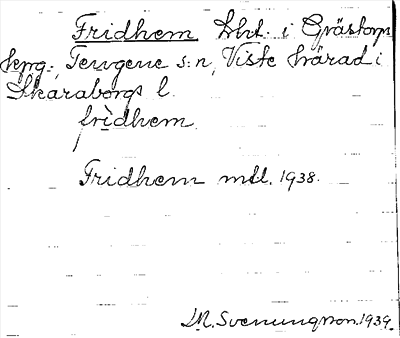 Fridhem Lht. i Grästorps
kpg., Tengene s:n, Viste härad i
Skaraborgs l.
frìdhem
Fridhem mtl. 1938.
M. Svenungsson. 1939.